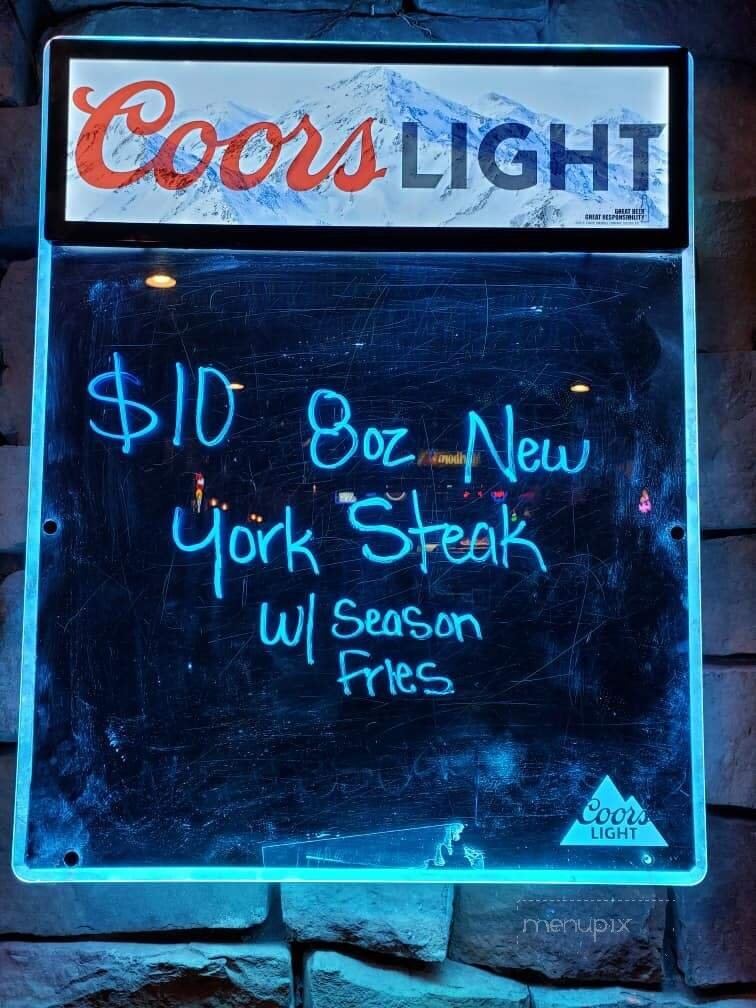 Coors LIGHT
GREAT BEER
GREAT RESPONSIBILITY
$10 8oz New
York Steak
W/ Season
Fries
Coors
LIGHT
menupix